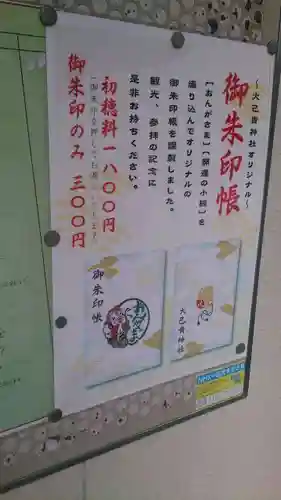 ～大己貴神社オリジナル～
御朱印帳
【おんがさま】【開運の小槌】を
盛り込んでオリジナルの
御朱印帳を謹製しました。
観光、参拝の記念に
是非お持ちください。
初穂料一八〇〇円
御朱印のみ 三〇〇円
御朱印帳
おんがさま
大己貴神社